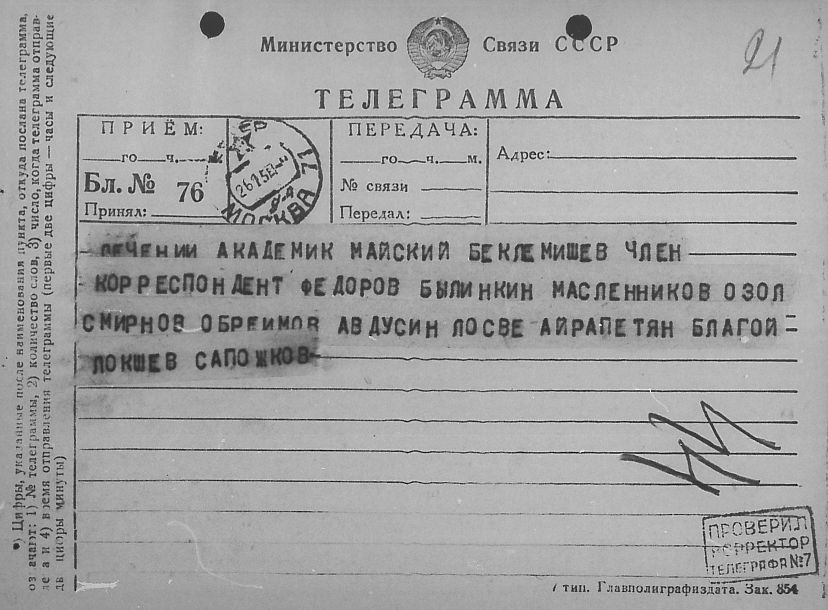 21
Министерство Связи СССР
ТЕЛЕГРАММА
ПРИЁМ:
го ч. м.
Бл. № 76
Принял:
МОСКВА
ПЕРЕДАЧА:
го ч. м.
№ связи
Передал:
Адрес:
ЛЕЧЕНИИ АКАДЕМИК МАЙСКИЙ БЕКЛЕМИШЕВ ЧЛЕН
КОРРЕСПОНДЕНТ ФЕДОРОВ БЫЛИНКИН МАСЛЕННИКОВ ОЗОЛ
СМИРНОВ ОБРЕИМОВ АВДУСИН ЛОСВЕ АЙРАПЕТЯН БЛАГОЙ -
ЛОКШЕВ САПОЖКОВ-
ПРОВЕРИЛ
КОРРЕКТОР
ТЕЛЕГРАФА №7
7 тип. Главполиграфиздата. Зак. 854
*) Цифры, указанные после наименования пункта, откуда послана телеграмма,
означают: 1) № телеграммы, 2) количество слов, 3) число, когда телеграмма отправ-
лена и 4) время отправления телеграммы (первые две цифры — часы и следующие
две цифры минуты)